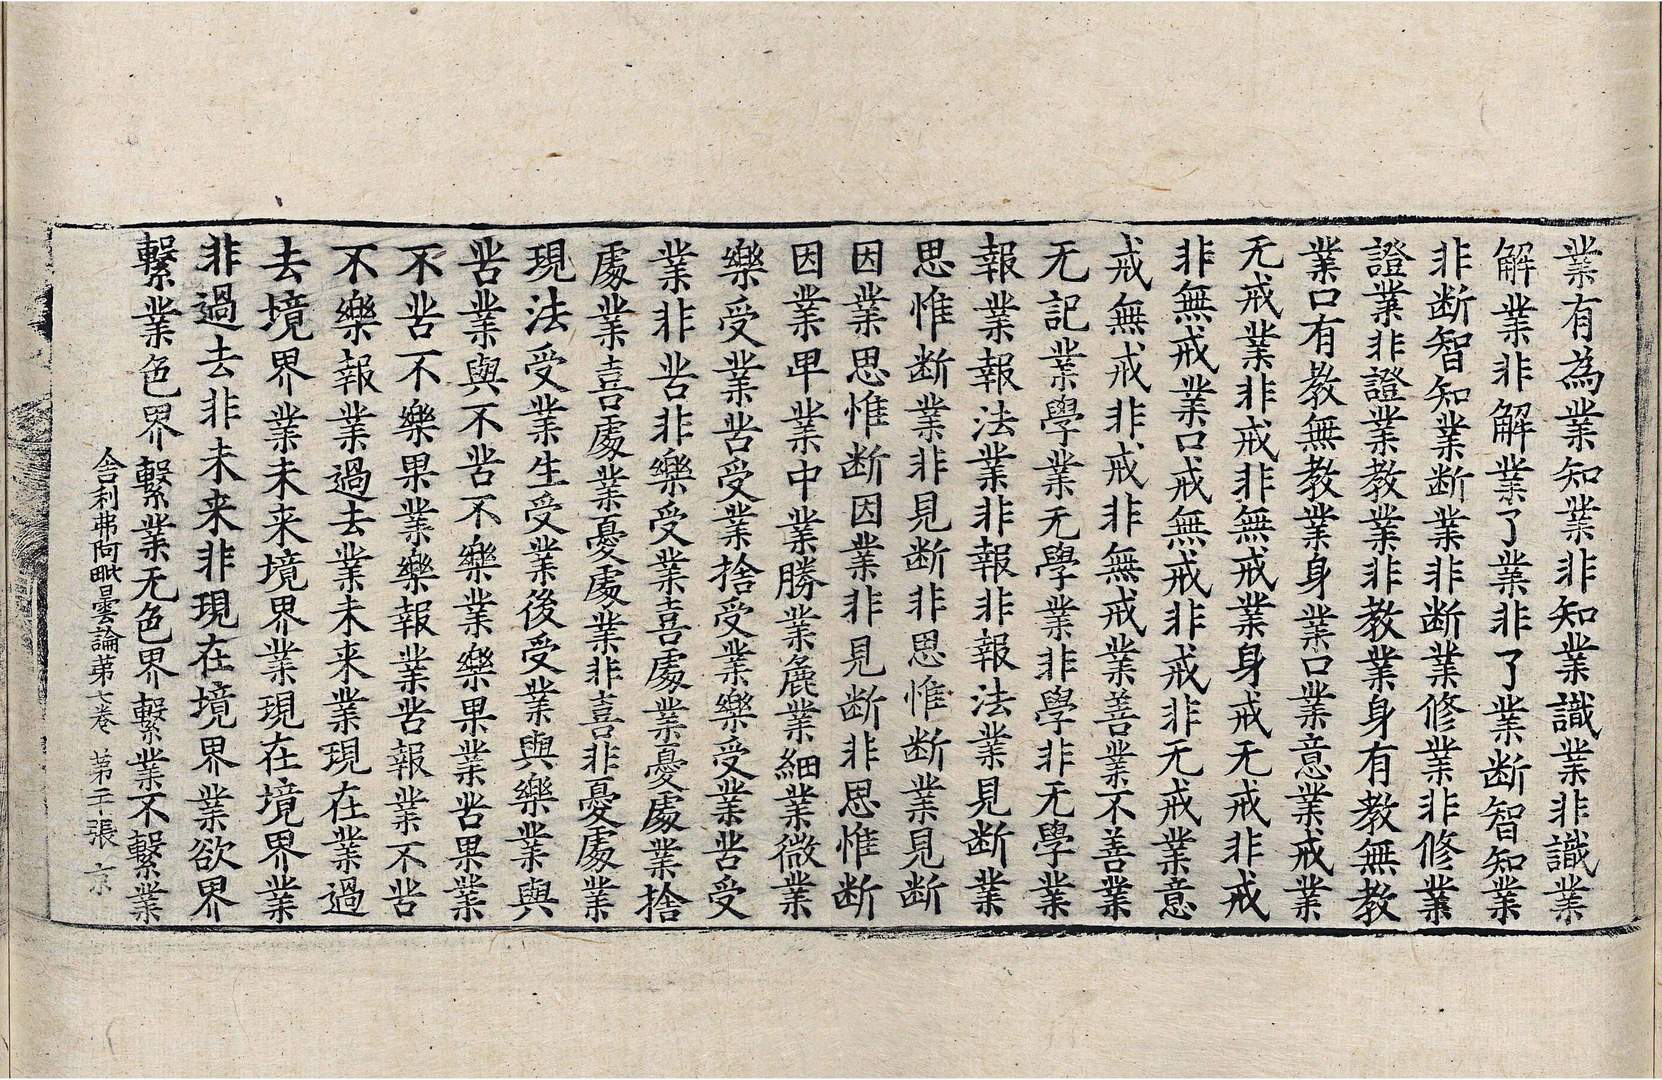 業有為業知業非知業識業非識業
解業非解業了業非了業断智知業
非断智知業断業非断業修業非修業
證業非證業教業非教業身有教無教
業口有教無教業身業口業意業戒業
无戒業非戒非無戒業身戒无戒非戒
非無戒業口戒無戒非戒非无戒業意
戒無戒非戒非無戒業善業不善業
无記業學業无學業非學非无學業
報業報法業非報非報法業見断業
思惟断業非見断非思惟断業見断
因業思惟断因業非見断非思惟断
因業卑業中業勝業麁業細業微業
樂受業苦受業捨受業樂受業苦受
業非苦非樂受業喜處業憂處業捨
處業喜處業憂處業非喜非憂處業
現法受業生受業後受業與樂業與
苦業與不苦不樂業樂果業苦果業
不苦不樂果業樂報業苦報業不苦
不樂報業過去業未来業現在業過
去境界業未来境界業現在境界業
非過去非未来非現在境界業欲界
繫業色界繫業无色界繫業不繫業
舍利弗阿毗曇論苐七卷 苐二張 京